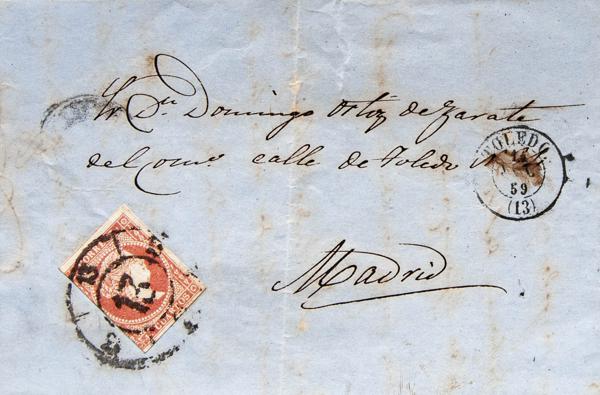 Sr Dn Domingo Ortiz de Zarate
del comº calle de Toledo
Madrid
TOLEDO
59
(13)
13
CORREOS